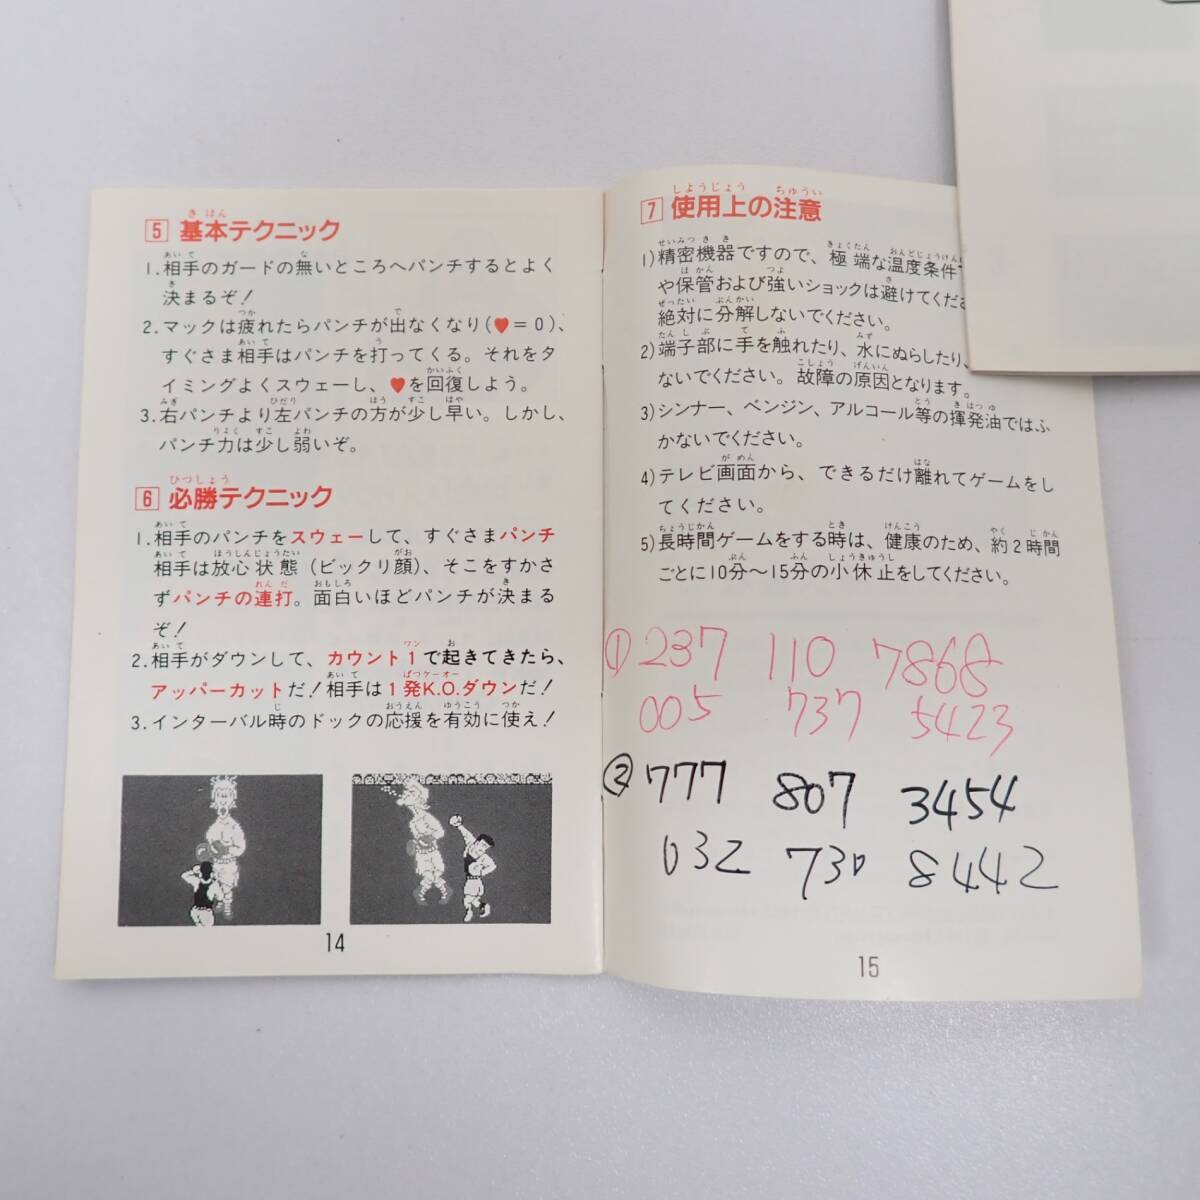 5 基本テクニック
1.相手のガードの無いところへパンチするとよく
決まるぞ!
2.マックは疲れたらパンチが出なくなり(♥=0)、
すぐさま相手はパンチを打ってくる。それをタ
イミングよくスウェーし、♥を回復しよう。
3.右パンチより左パンチの方が少し早い。しかし、
パンチ力は少し弱いぞ。
6 必勝テクニック
1.相手のパンチをスウェーして、すぐさまパンチ
相手は放心状態(ビックリ顔)、そこをすかさ
ずパンチの連打。面白いほどパンチが決まる
ぞ!
2.相手がダウンして、カウント1で起きてきたら、
アッパーカットだ!相手は1発K.O.ダウンだ!
3.インターバル時のドックの応援を有効に使え!
14
7 使用上の注意
1)精密機器ですので、極端な温度条件
や保管および強いショックは避けてくださ
絶対に分解しないでください。
2)端子部に手を触れたり、水にぬらしたり、
ないでください。故障の原因となります。
3)シンナー、ベンジン、アルコール等の揮発油ではふ
かないでください。
4)テレビ画面から、できるだけ離れてゲームをし
てください。
5)長時間ゲームをする時は、健康のため、約2時間
ごとに10分～15分の小休止をしてください。
① 237 110 7868
005 737 5423
② 777 807 3454
032 730 8442
15